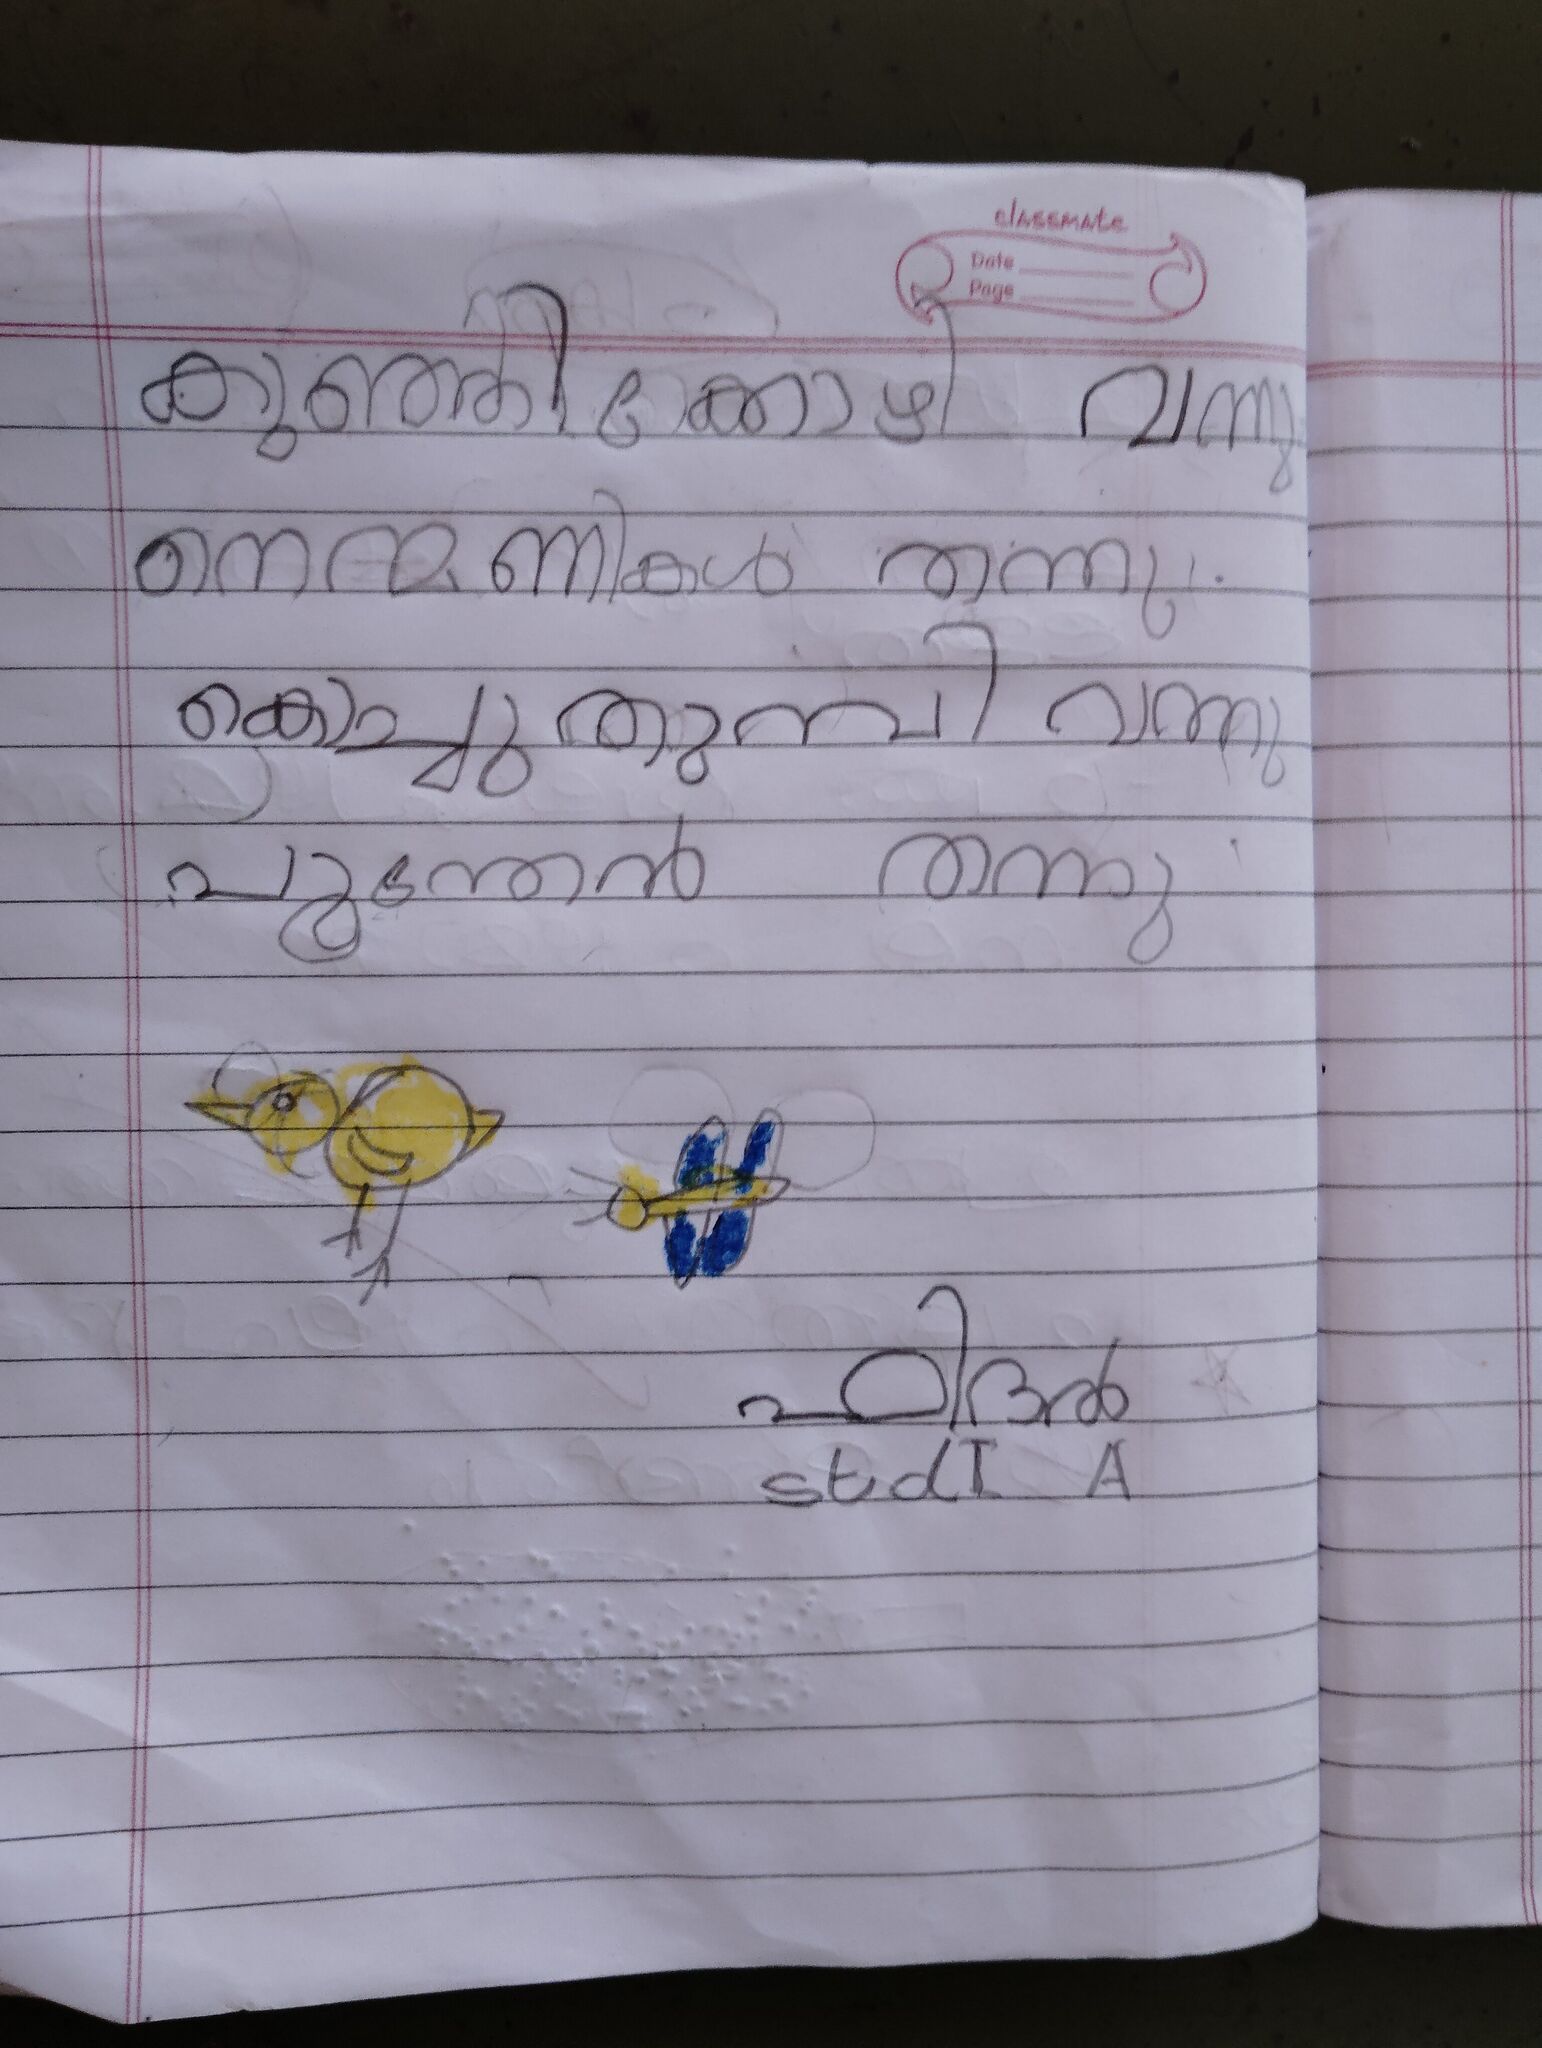 classmate
Date
Page
കുഞ്ഞിക്കോഴി വന്നു
നെന്മണികൾ തന്നു.
കൊച്ചു തുമ്പി വന്നു
പൂന്തേൻ തന്നു
ഫിദൽ
std I A